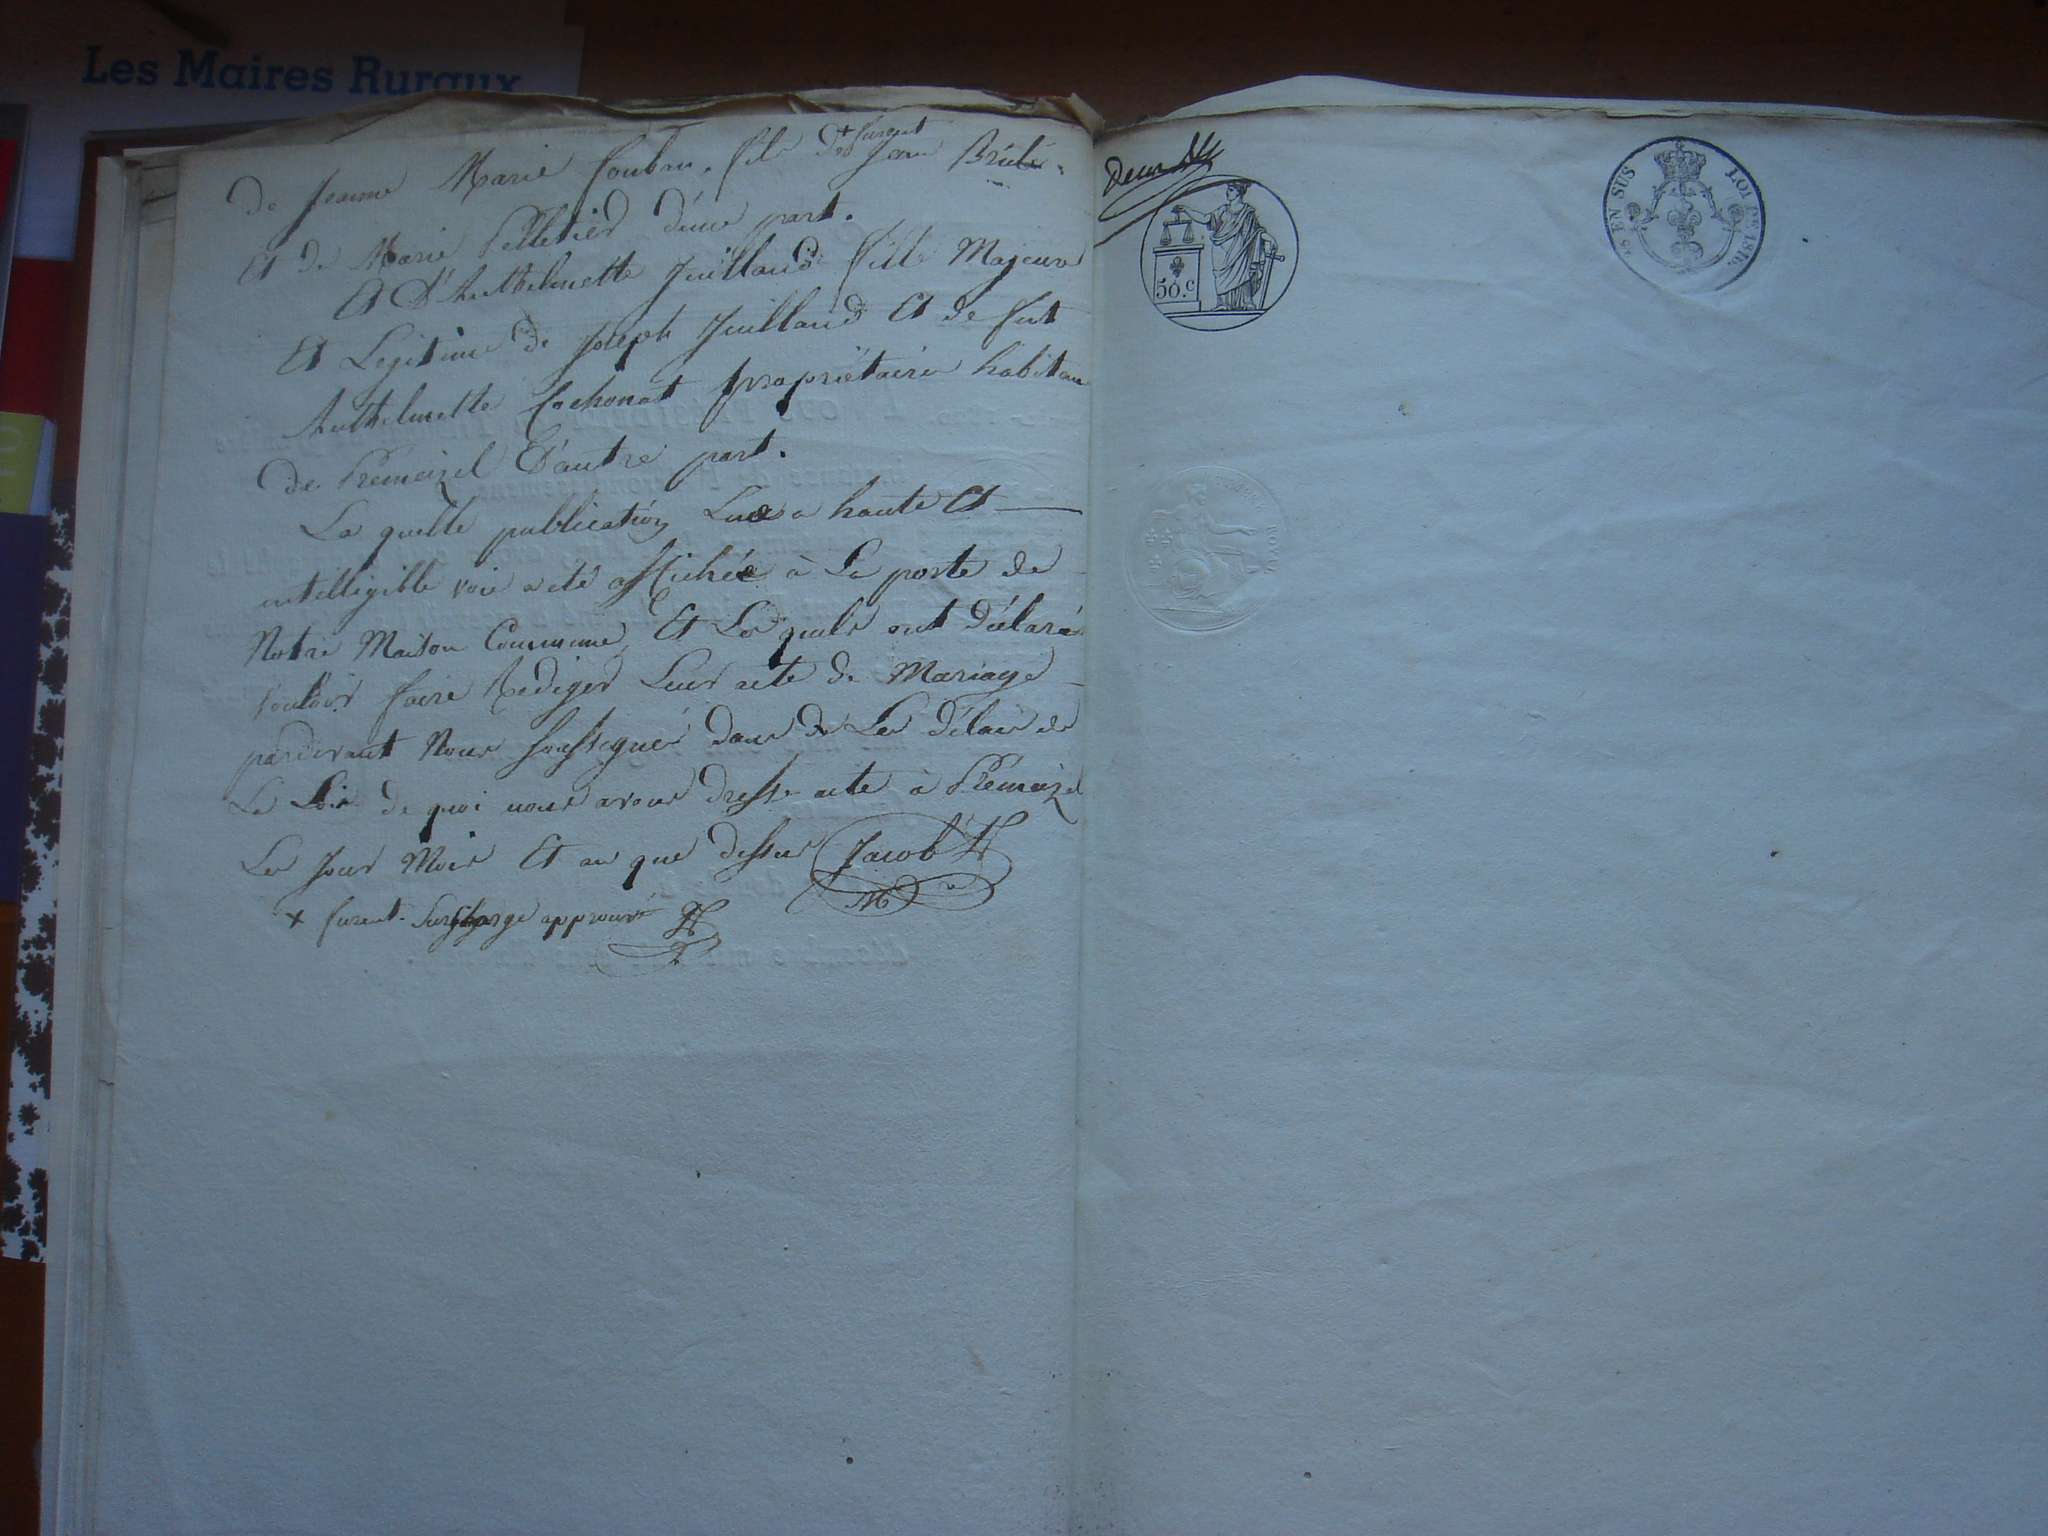 Les Maires Ruraux
de Jeanne Marie fils de + furent Jean Brulé.
Et de Marie Pelletier d'une part.
Et d'Anthelmette Juilland fille Majeure
Et Legitime de Joseph Juilland Et de fut
Anthelmette Cochonat propriétaire habitan
de Premeizel D'autre part.
La quelle publication Lue a haute Et
intelligible voie a été affichée à La porte de
Notre Maison Commune, Et Les quels ont Déclaré
vouloir faire Rediger Leur acte de Mariage
pardevant Nous soussigné dans de Les Délais de
La Loix de quoi nous avons dressé acte à Prémeizel
Les Jour Mois Et an que dessus Jacob
M
+ furent Surcharge approuvé
deux
50.c
EN SUS
LOI DE 1816.